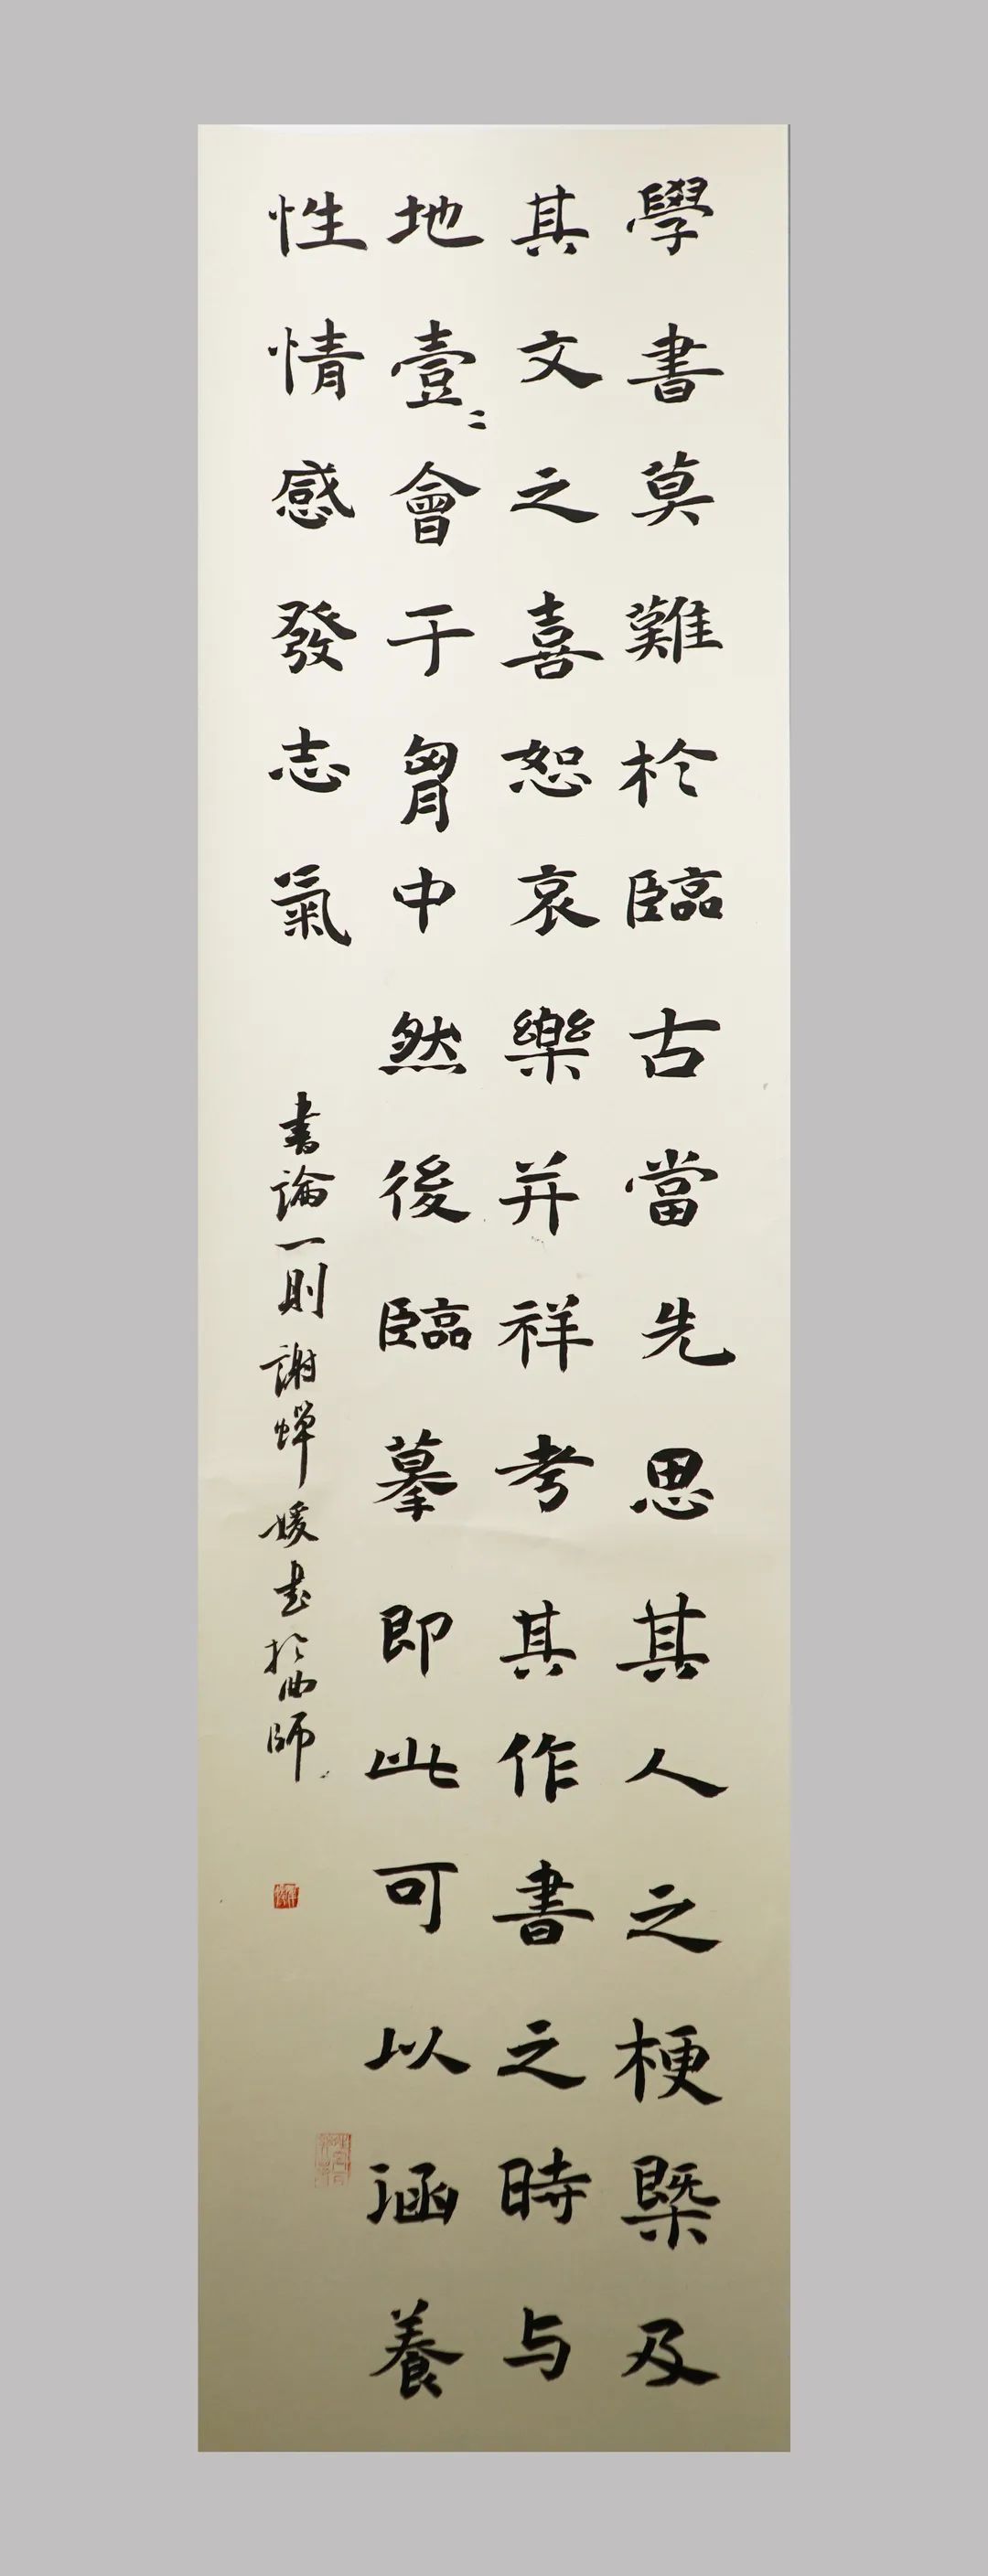 學書莫難於臨古當先思其人之梗槩及
其文之喜恕哀樂并祥考其作書之時与
地壹〻會于胷中然後臨摹即此可以涵養
性情感發志氣
書論一則 謝蟬媛書於曲師